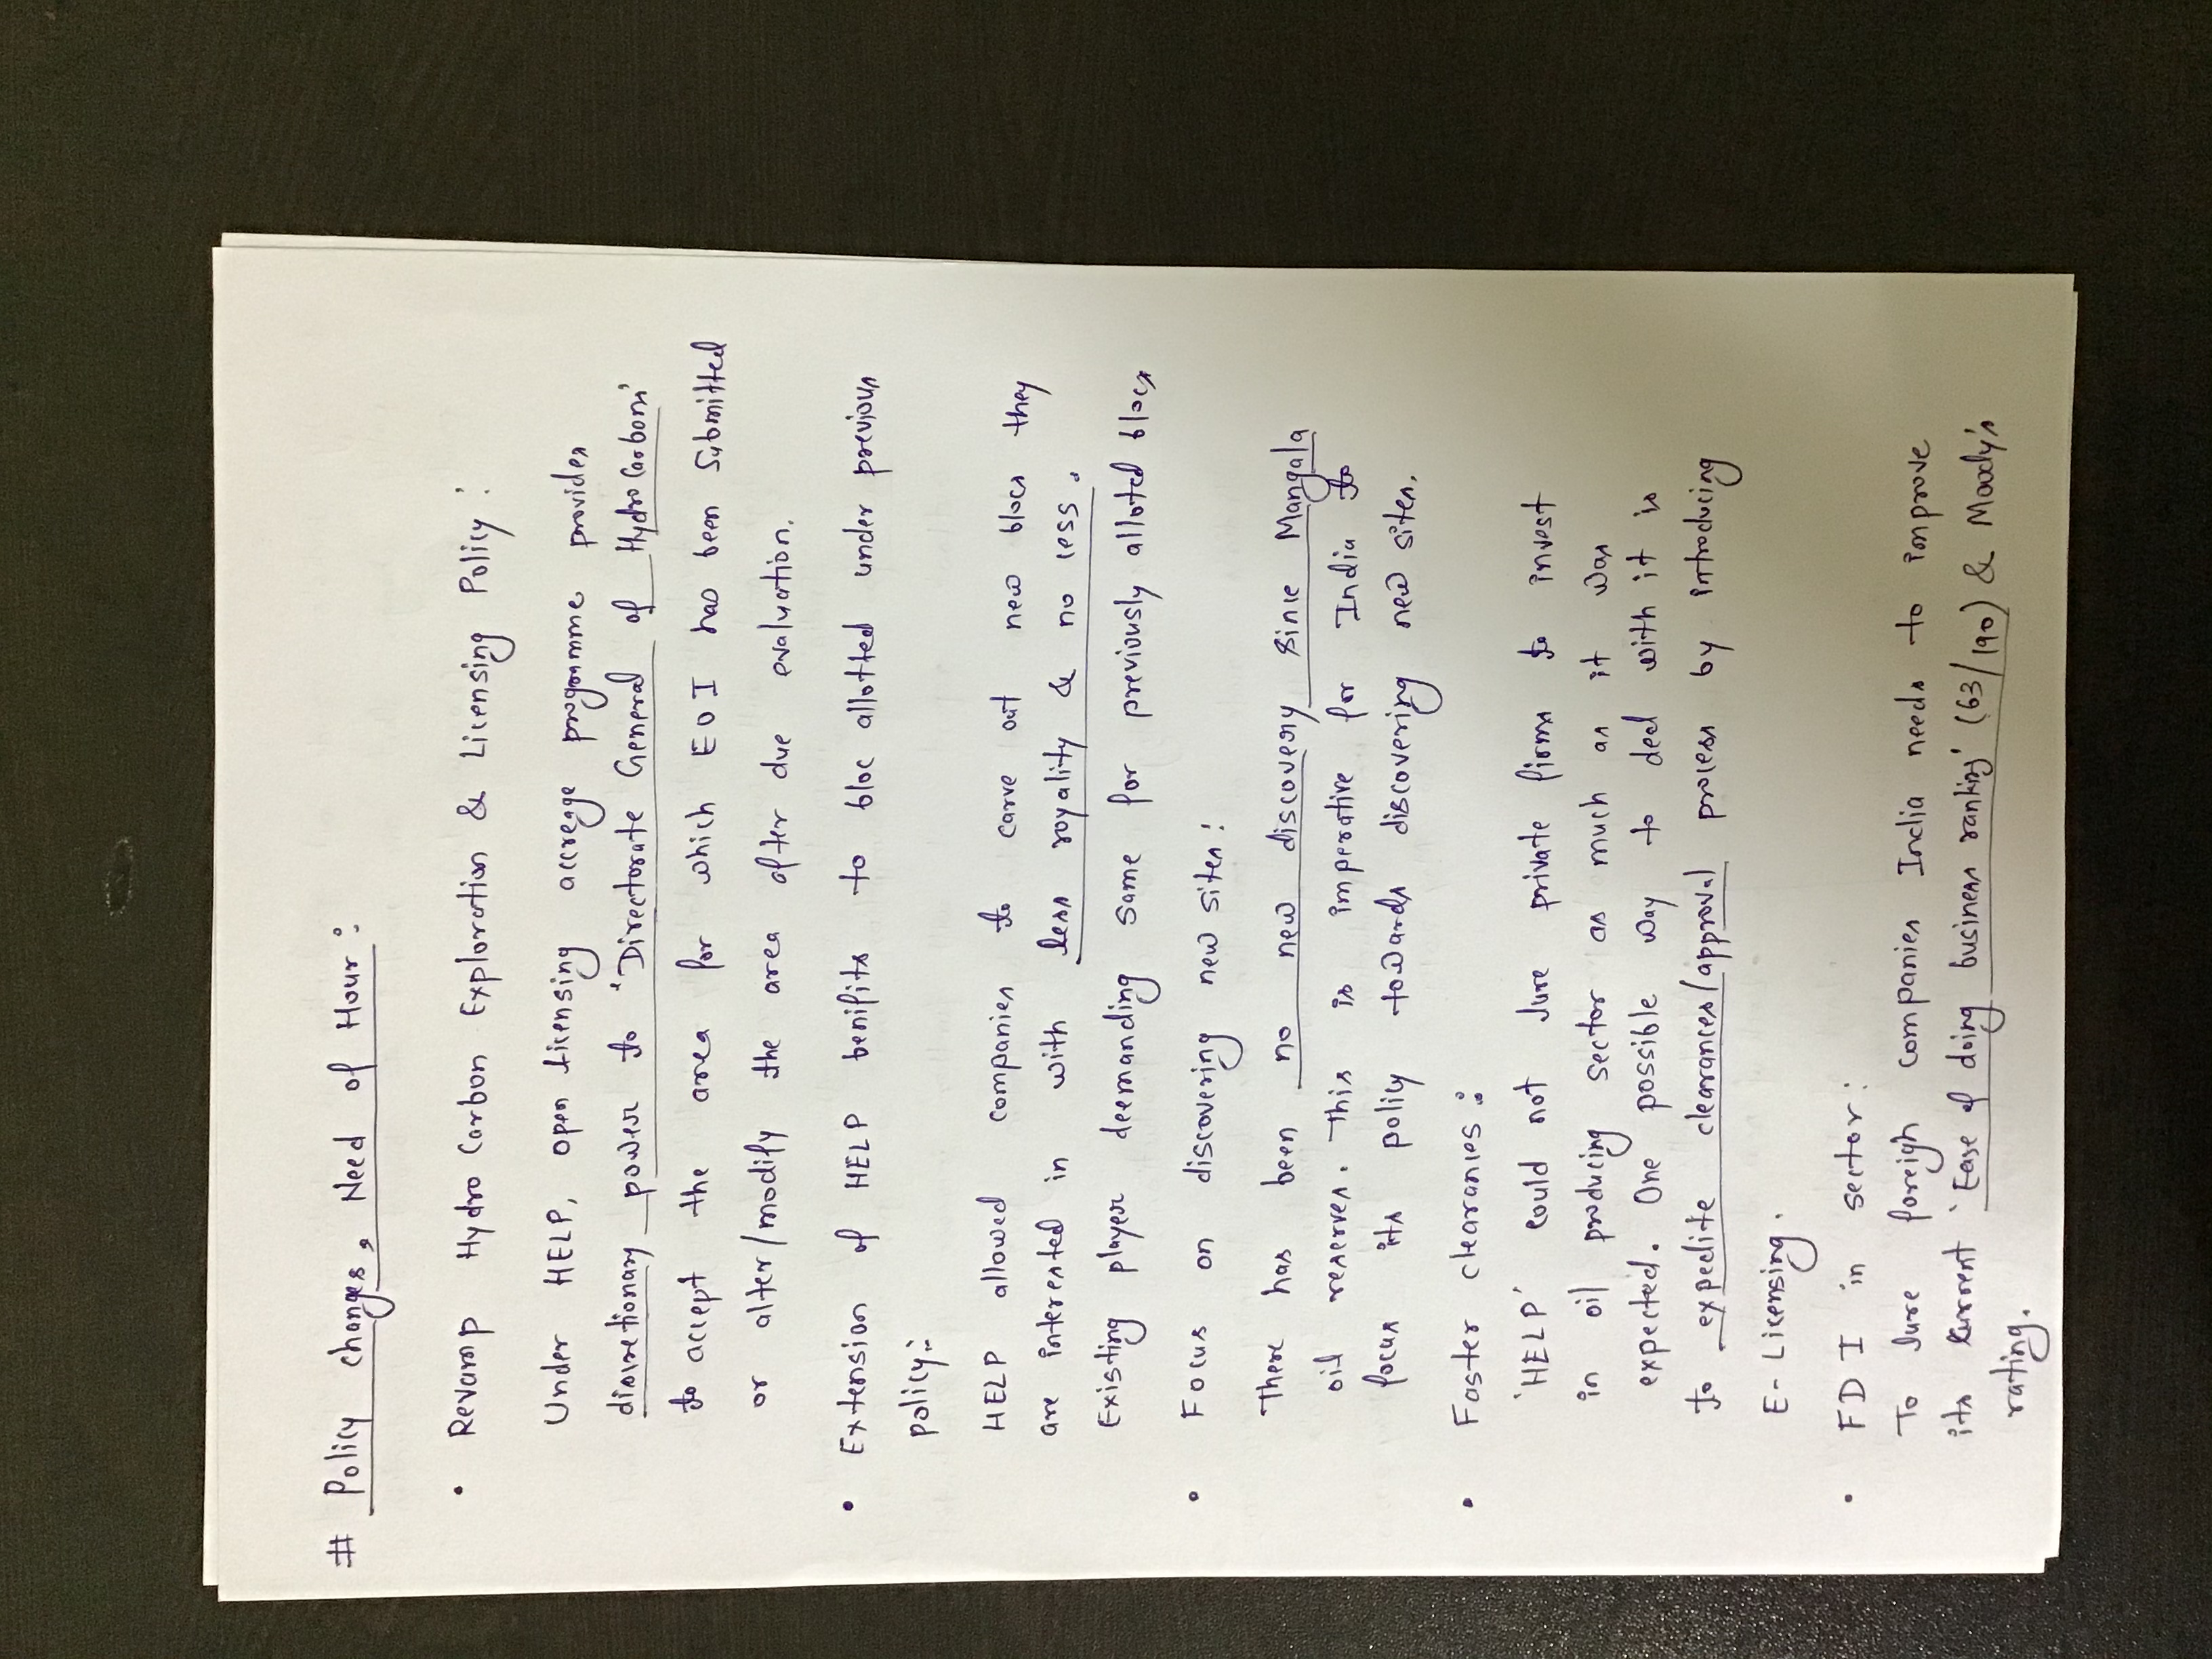 # Policy changes, Need of Hour :
• Revamp Hydro Carbon Exploration & Licensing Policy :
Under HELP, open licensing accrege programme provides
disiretionary power to 'Directorate General of HydroCarbons'
to accept the area for which EOI has been submitted
or alter/modify the area after due evaluation.
• Extension of HELP benifits to bloc allotted under previous
policy:-
HELP allowed companies to carve out new blocs they
are interested in with less royality & no cess.
Existing player deemanding same for previously alloted blocs
• Focus on discovering new sites :
There has been no new discovery since Mangala
oil reserves. This is imperative for India to
focus its policy towards discovering new sites.
• Faster clearanies :
'HELP' could not lure private firms to invest
in oil producing sector as much as it was
expected. One possible way to deal with it is
to expedite clearances/approval process by introducing
E-Licensing.
• FDI in sector :
To lure foreign companies India needs to improve
its current 'Ease of doing business ranking' (63/190) & Moody's
rating.